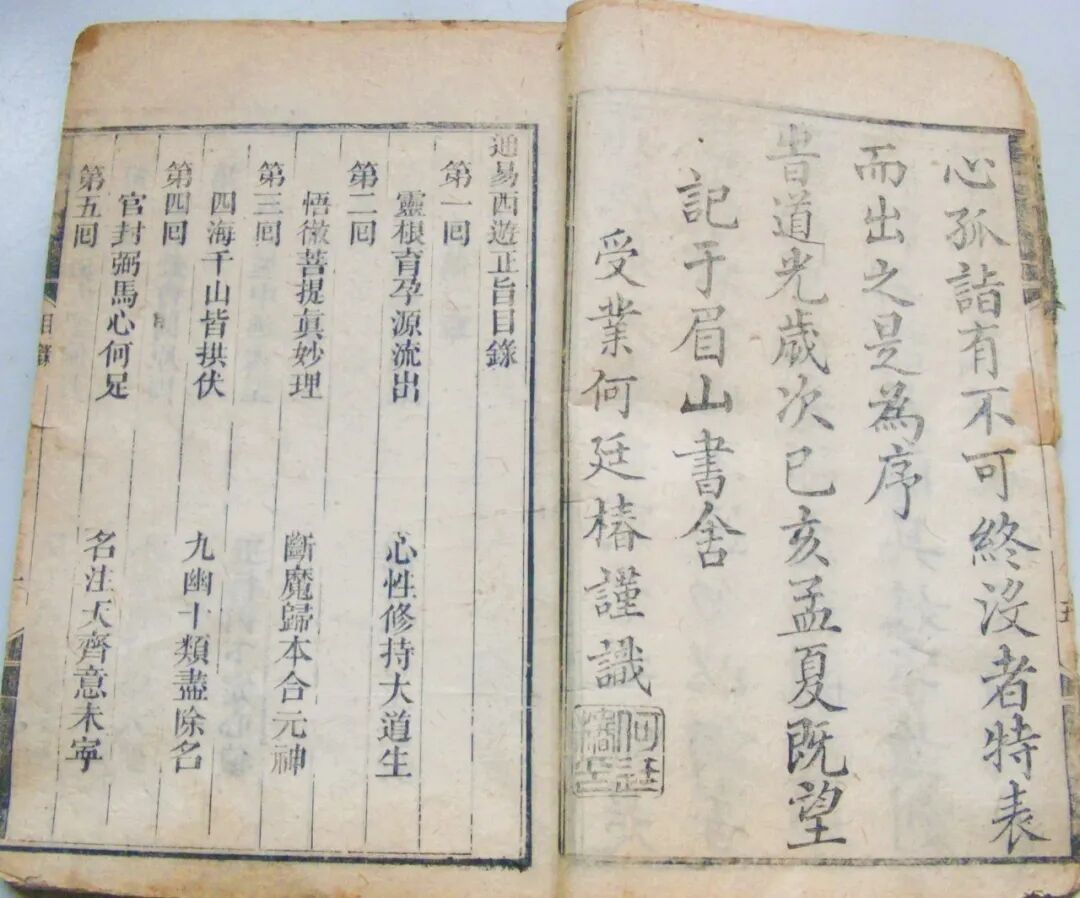 心孤詣有不可終沒者特表
而出之是為序
旹道光歲次己亥孟夏既望
記于眉山書舍
受業何廷椿謹識
通易西遊正旨目錄
第一回
靈根育孕源流出 心性修持大道生
第二回
悟徹菩提眞妙理 斷魔歸本合元神
第三回
四海千山皆拱伏 九幽十類盡除名
第四回
官封弼馬心何足 名注天齊意未寧
第五回
目錄